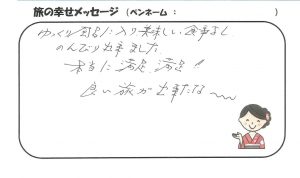 旅の幸せメッセージ （ペンネーム： ）
ゆっくり風呂に入り美味しい食事をし
のんびり出来ました
本当に満足、満足!!
良い旅が出来たな～～